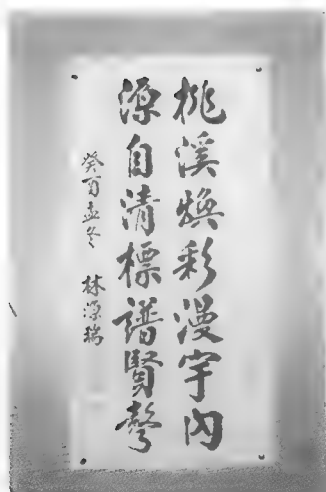 桃溪煥彩漫宇內
源自清標譜賢聲
癸酉孟冬 林源瑞